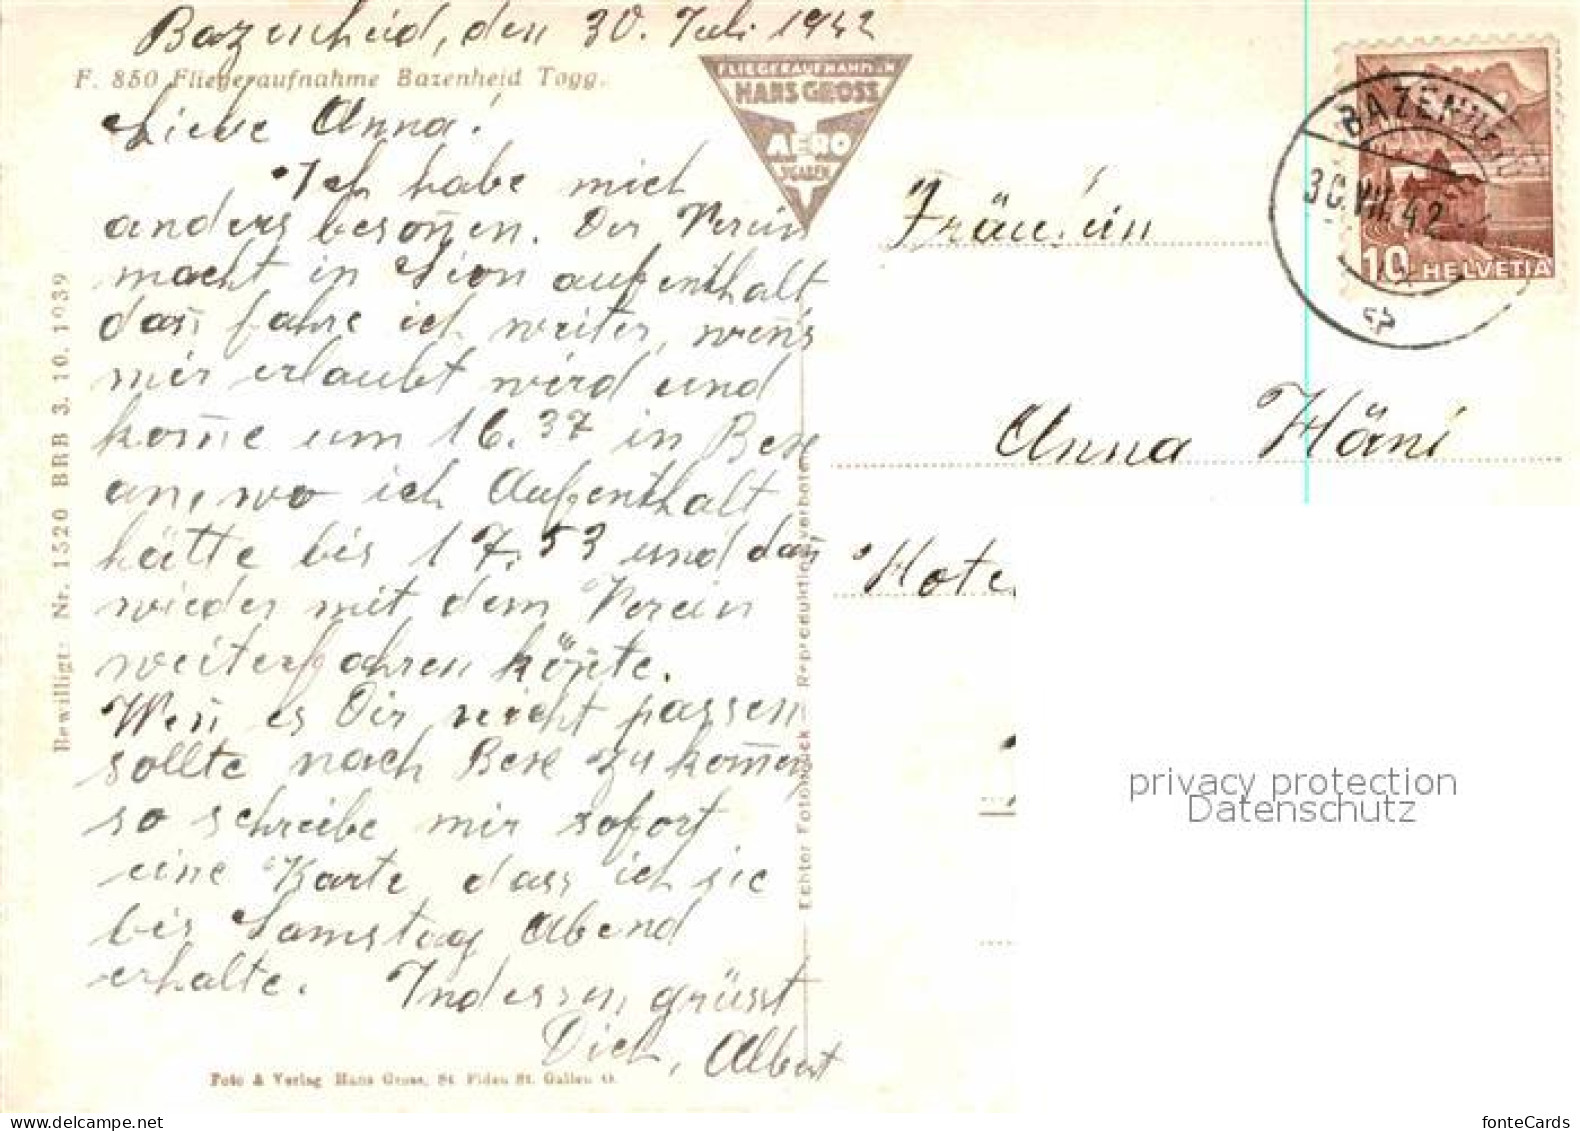 Bazenheid, den 30. Juli 1942
F. 850 Fliegeraufnahme Bazenheid Togg.
FLIEGERAUFNAHMEN
HANS GROSS
AERO
Liebe Anna!
Ich habe mich
anders beson̄en. Der Verein
macht in Sion aufenthalt
dan̄ fahre ich weiter, wen̄s
mir erlaubt wird und
kom̄e um 16.37 in Bex
an, wo ich Aufenthalt
hätte bis 17.53 und dan̄
wieder mit dem Verein
weiterfahren kön̄te.
Wen̄ es Dir nicht passen
sollte nach Bex zu kom̄en,
so schreibe mir sofort
eine Karte, dass ich sie
bis Samstag Abend
erhalte. Indessen grüsst
Dich, Albert
Foto & Verlag Hans Gross, St. Fiden St. Gallen O.
Bewilligt: Nr. 1520 BRB 3. 10. 1939
Echter Fotodruck — Reproduktion verboten
BAZENHEID
30.VII.42
10 HELVETIA
Fräulein
Anna Häni
Hote
privacy protection
Datenschutz
fonteCards